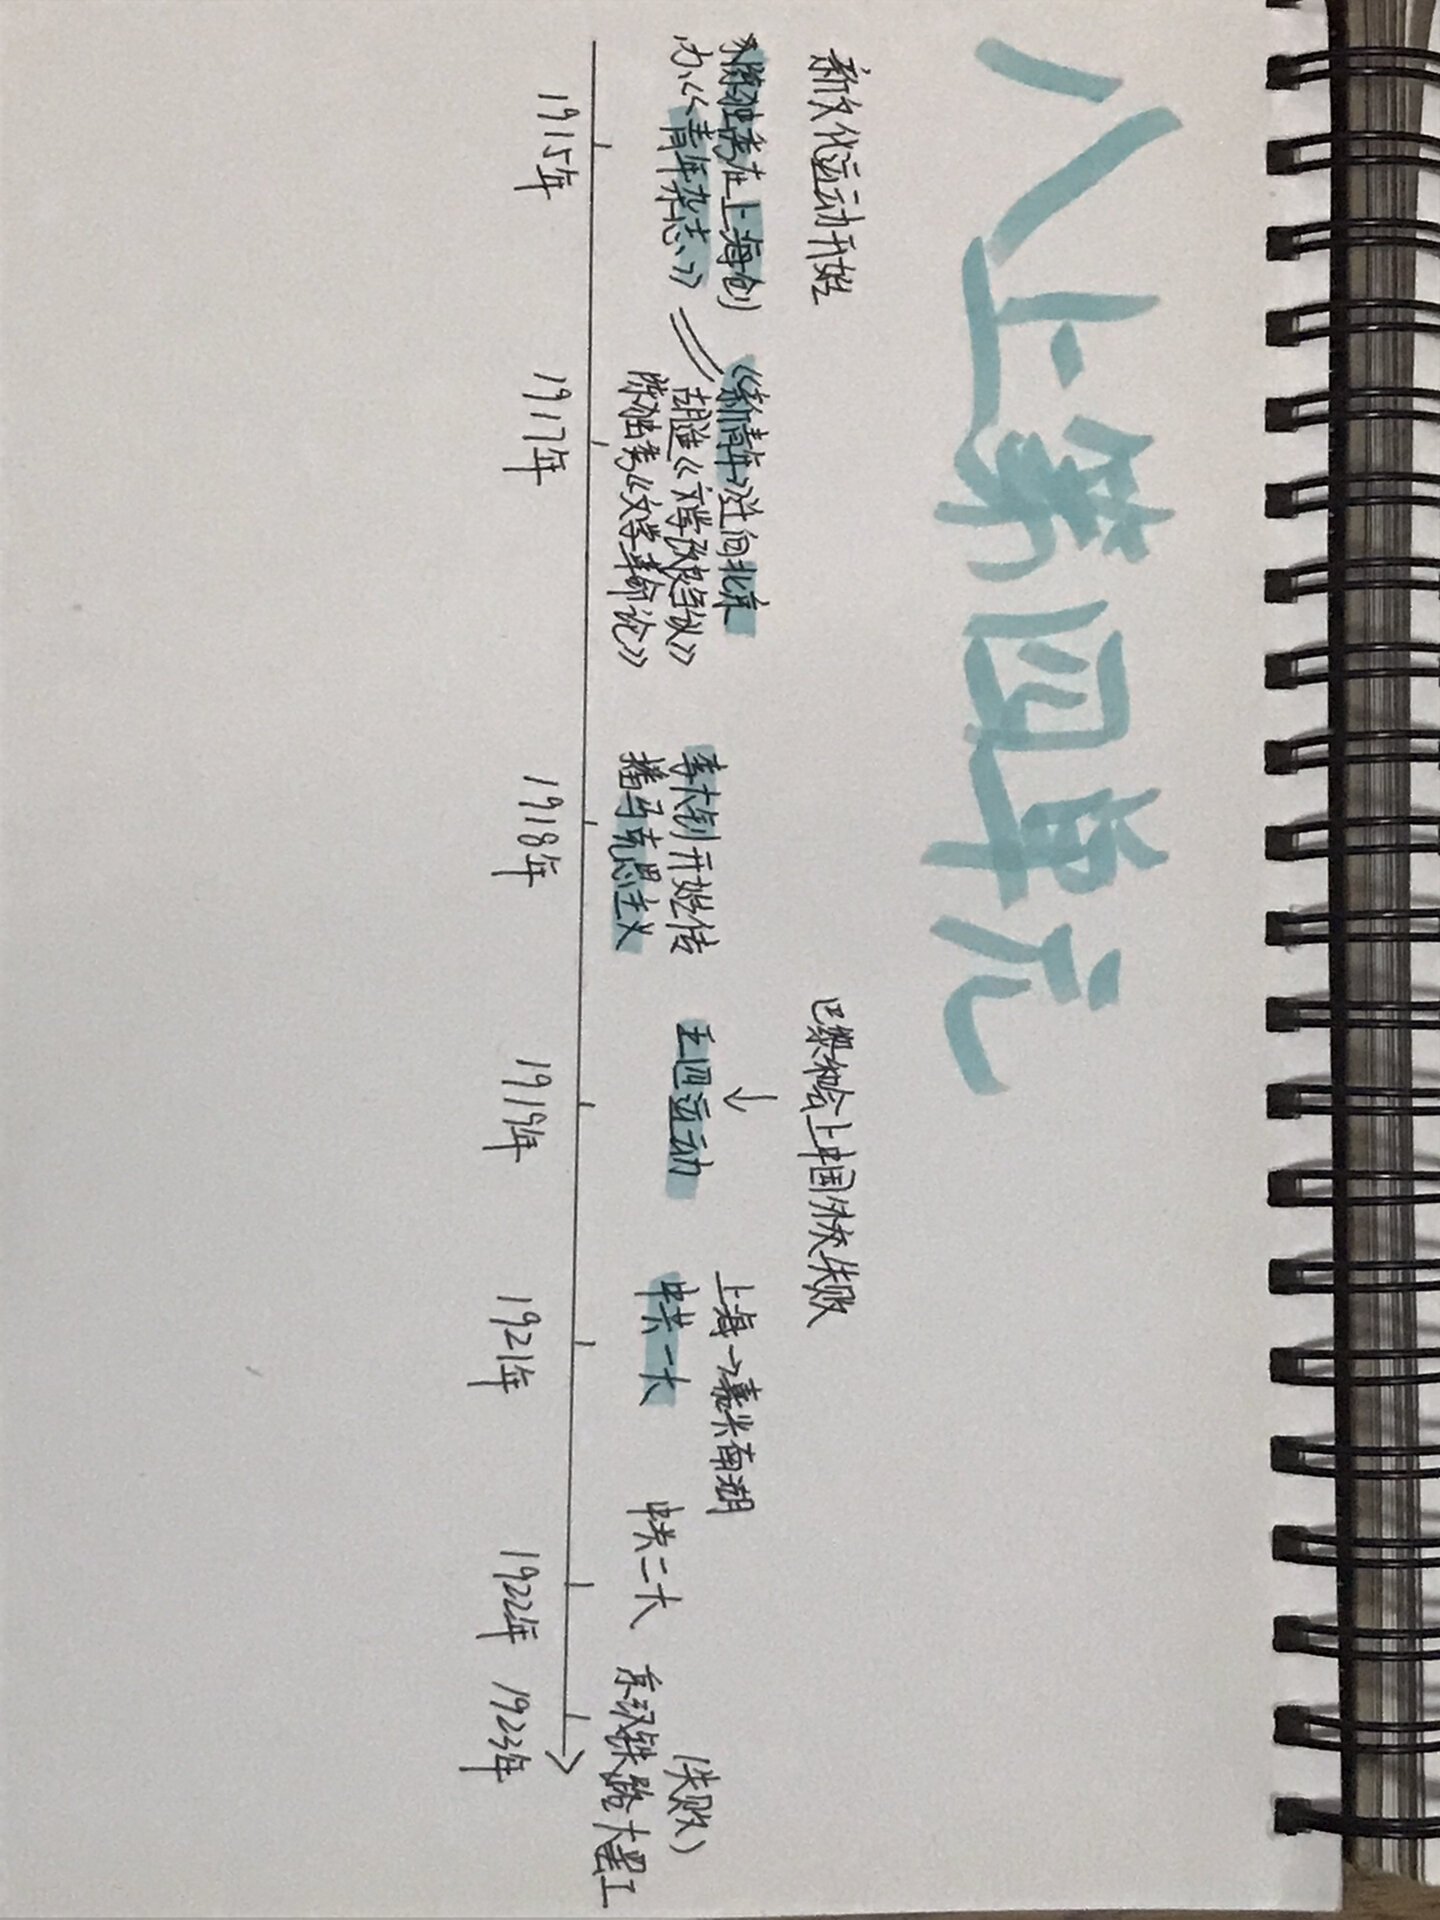 八上第四单元
新文化运动开始
陈独秀在上海创
办《青年杂志》
1915年
《新青年》迁回北京
胡适《文学改良刍议》
陈独秀《文学革命论》
1917年
李大钊开始传
播马克思主义
1918年
巴黎和会上中国外交失败
↓
五四运动
1919年
上海→嘉兴南湖
中共一大
1921年
中共二大
1922年
(失败)
京汉铁路大罢工
1923年